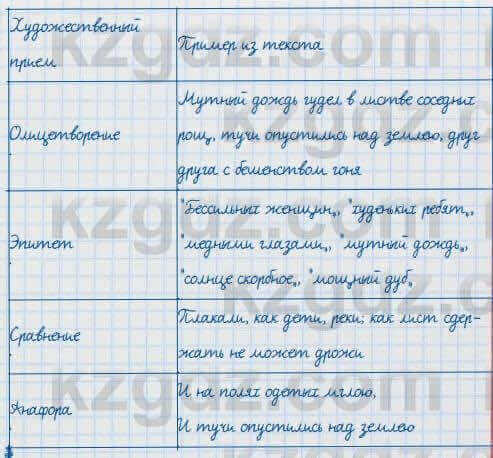 Художественный
прием
Пример из текста
Олицетворение
Мутный дождь гудел в листве соседних
рощ, тучи опустились над землею, друг
друга с бешенством гоня
Эпитет
"Бессильных женщин", "худеньких ребят",
"медными глазами", "мутный дождь",
"солнце скорбное", "мощный дуб"
Сравнение
Плакали, как дети, реки; как лист сдер-
жать не может дрожи
Анафора
И на полях одетых мглою,
И тучи опустились над землею
kzgdz.com
kzgdz.com
kzgdz.com
kzgdz.com